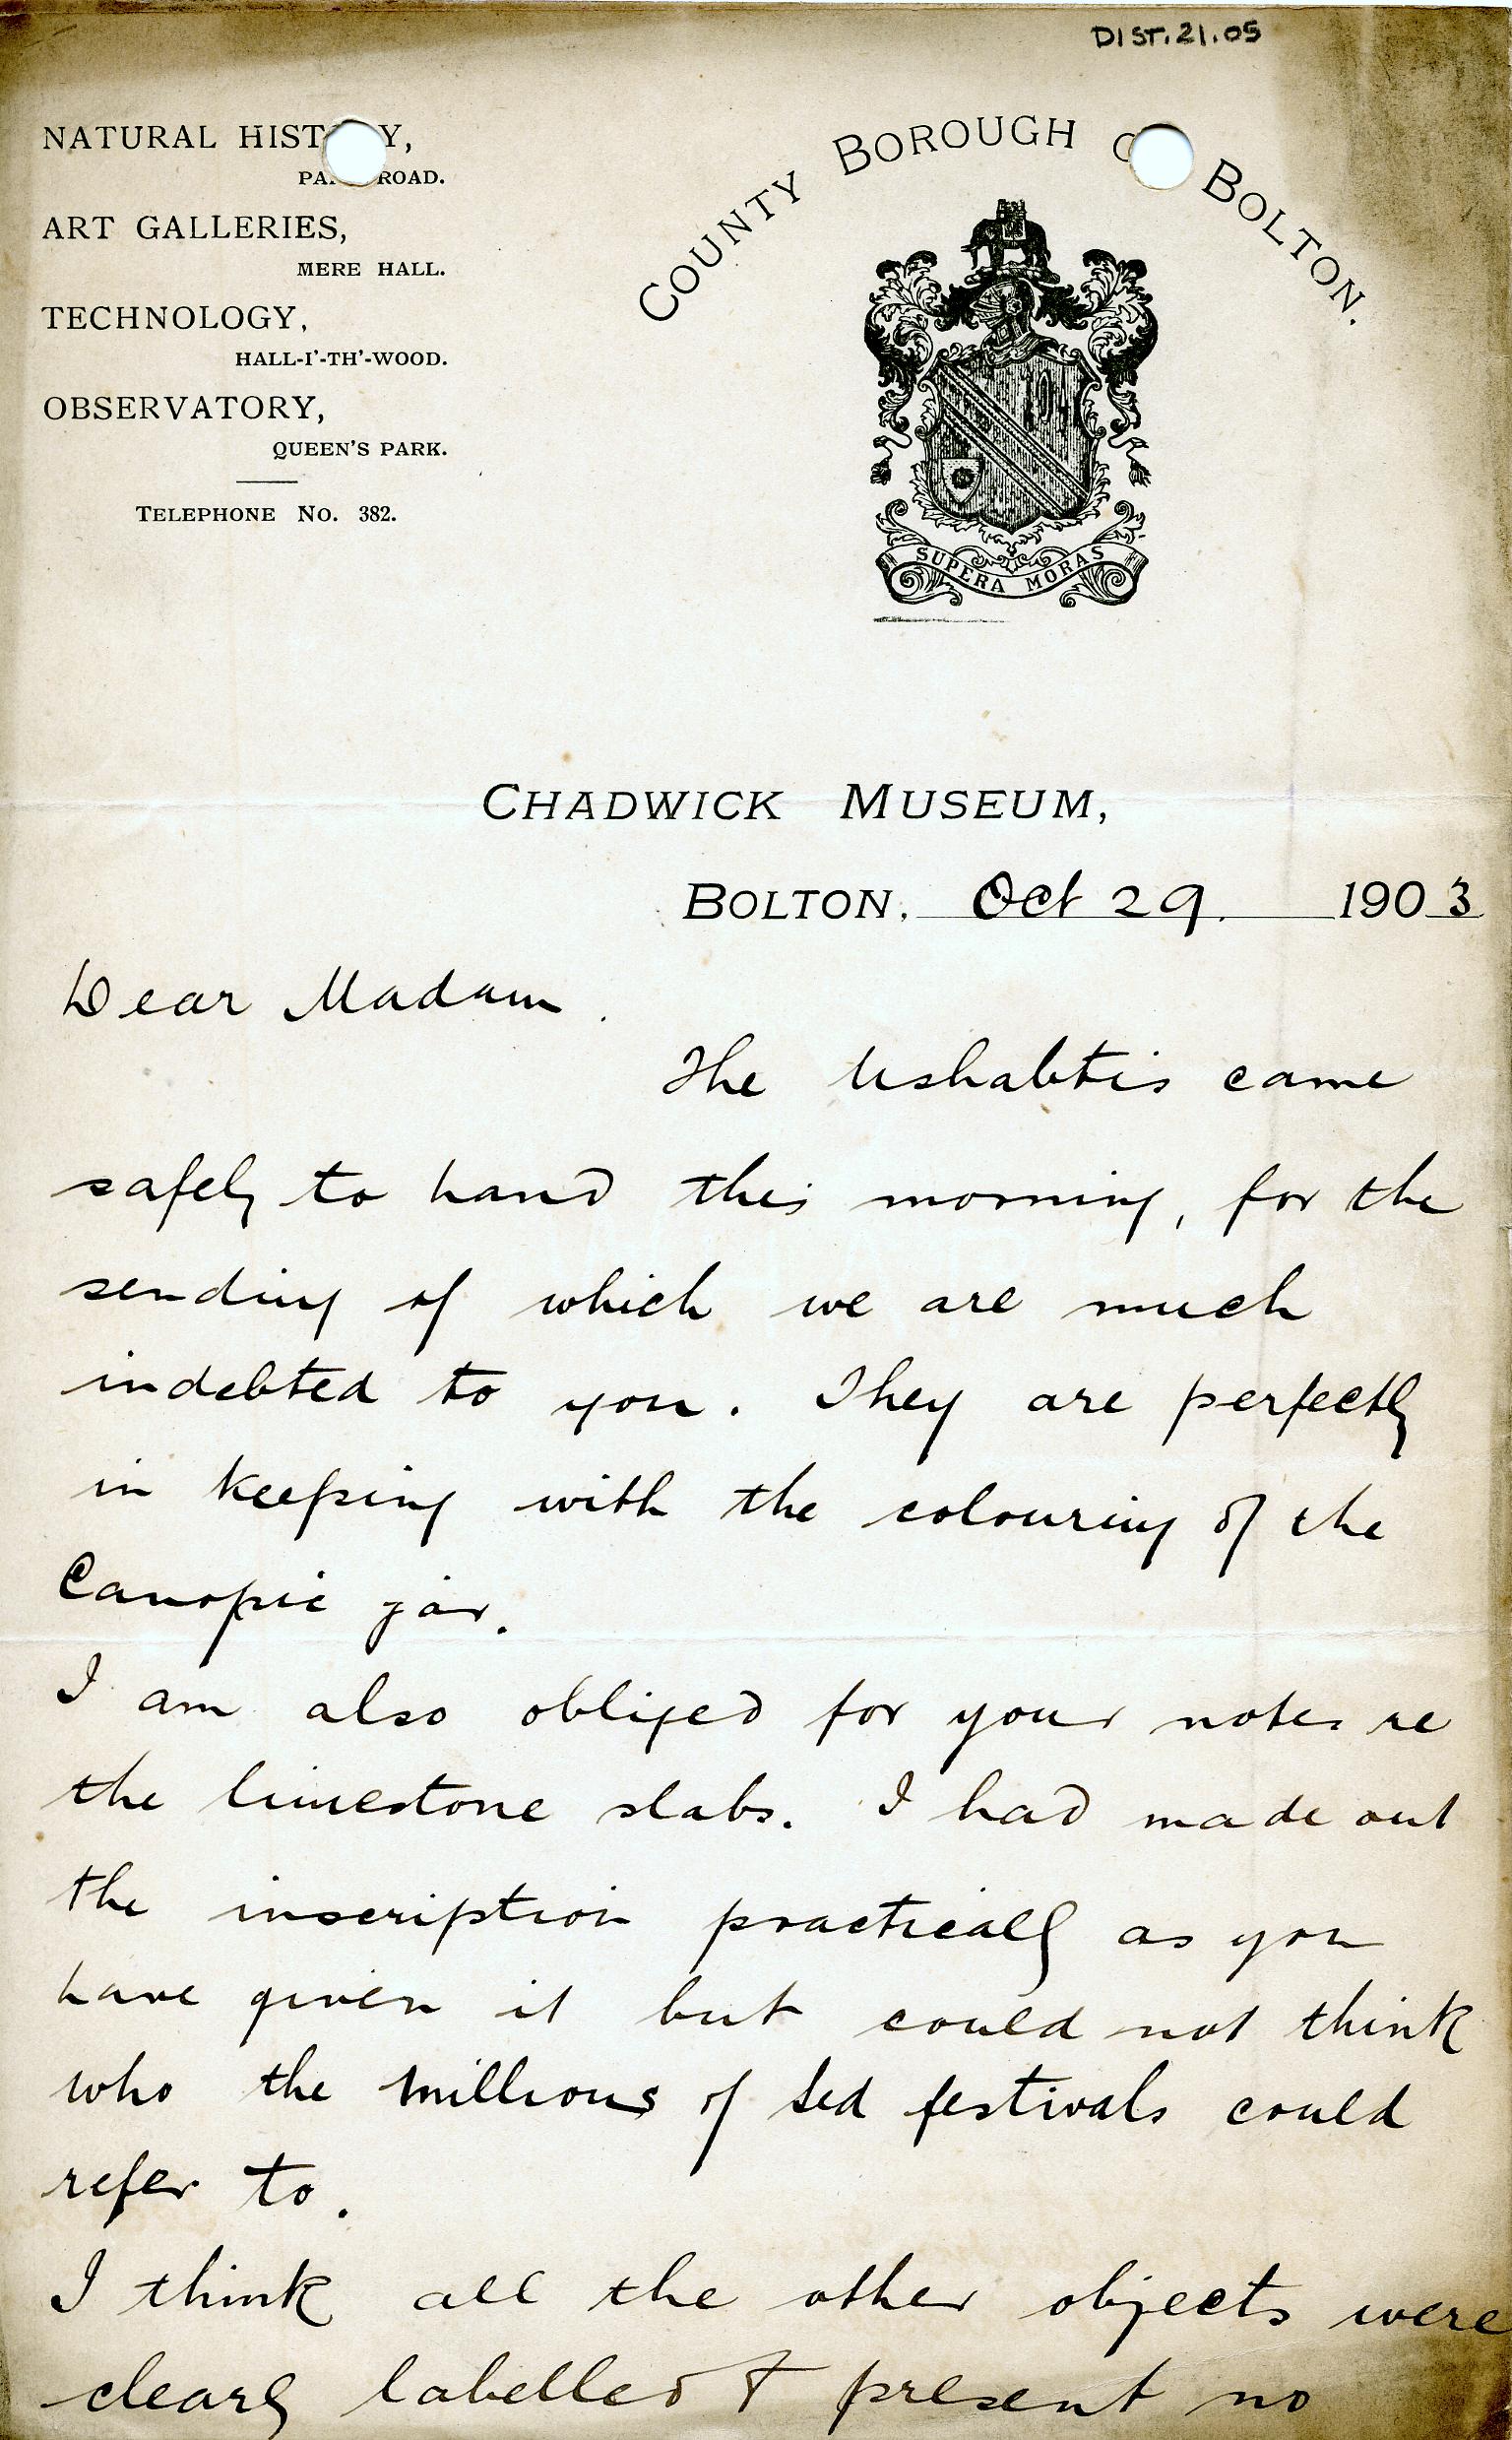 DIST.21.05
NATURAL HIST Y,
ROAD.
ART GALLERIES,
MERE HALL.
TECHNOLOGY,
HALL-I'-TH'-WOOD.
OBSERVATORY,
QUEEN'S PARK.
TELEPHONE NO. 382.
COUNTY BOROUGH BOLTON.
SUPERA MORAS
CHADWICK MUSEUM,
BOLTON, Oct 29. 1903
Dear Madam.
The Ushabtis came
safely to hand this morning, for the
sending of which we are much
indebted to you. They are perfectly
in keeping with the colouring of the
Canopic jar.
I am also obliged for your notes re
the limestone slabs. I had made out
the inscription practically as you
have given it but could not think
who the millions of Sed festivals could
refer to.
I think all the other objects were
clearly labelled & present no